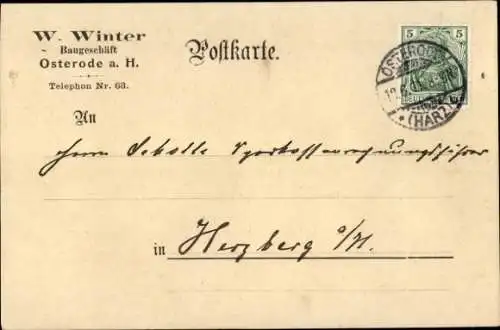 W. Winter
Baugeschäft
Osterode a. H.
Telephon Nr. 63.
Postkarte.
5 5
OSTERODE
(HARZ)
An
Herrn Scholle Sparkassenrechnungsführer
in Herzberg a/H.